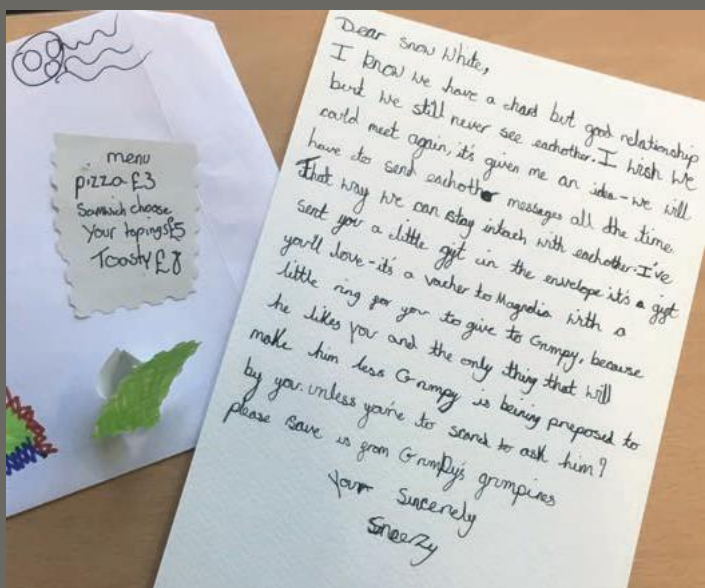 menu
pizza £3
Samwich choose
your topings £5
Toasty £8
Dear snow white,
I know we have a chard but good relationship
burt we still never see eachother. I wish we
could meet again, it's given me an idea - we will
have to send eachother messages all the time.
That way we can stay intach with eachother. I've
sent you a little gift in the envelope it's a gift
you'll love - it's a vacher to Magnolia with a
little ring for you to give to Grumpy, because
he likes you and the only thing that will
make him less Grumpy is beiing preposed to
by you. unless you're to scared to ask him?
please save is from GrumPy's grumpines
Your Sincerely
Sneezy